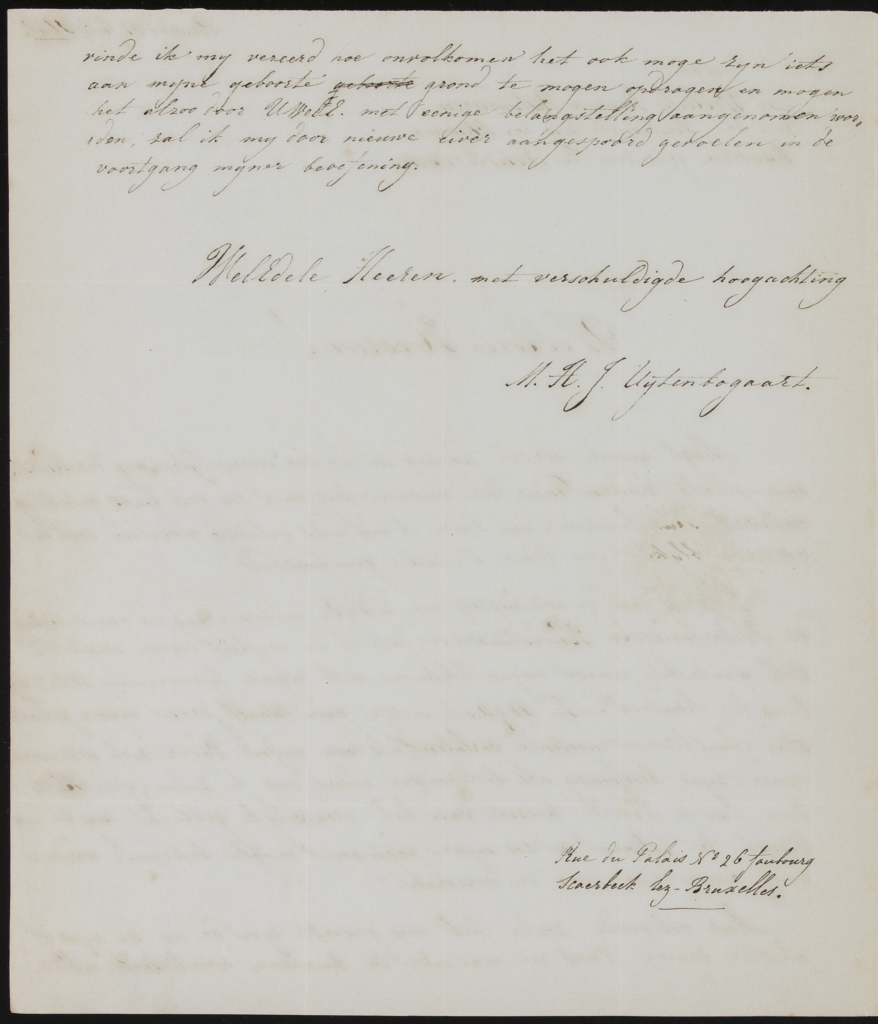 vinde ik my vereerd hoe onvolkomen het ook moge zyn iets
aan myne geboorte geboorte grond te mogen opdragen en mogen
het alzoo door UWelE. met eenige belangstelling aangenomen wor,
den, zal ik my door nieuwe eiver aangespoord gevoelen in de
voortgang myner beoefening.
WelEdele Heeren. met verschuldigde hoogachting
M. H. J. Uytenbogaart.
Rue du Palais No 26 faubourg
Scaerbeek lez-Bruxelles.